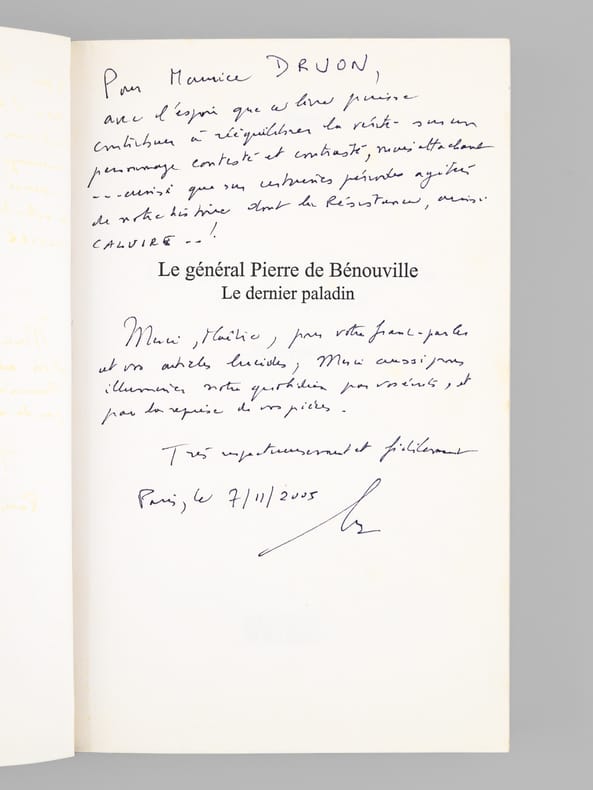 Pour Maurice DRUON,
avec l'espoir que ce livre puisse
contribuer à rééquilibrer la vérité sur un
personnage contesté et contrasté, mais attachant
---ainsi que sur certaines périodes agitées
de notre histoire dont la Résistance, aussi
CALUIRE --!
Le général Pierre de Bénouville
Le dernier paladin
Merci, Maître, pour votre franc-parler
et vos articles lucides, Merci aussi pour
illuminer notre quotidien par vos écrits, et
par la reprise de vos pièces.
Très respectueusement et fidèlement
Paris, le 7/11/2005